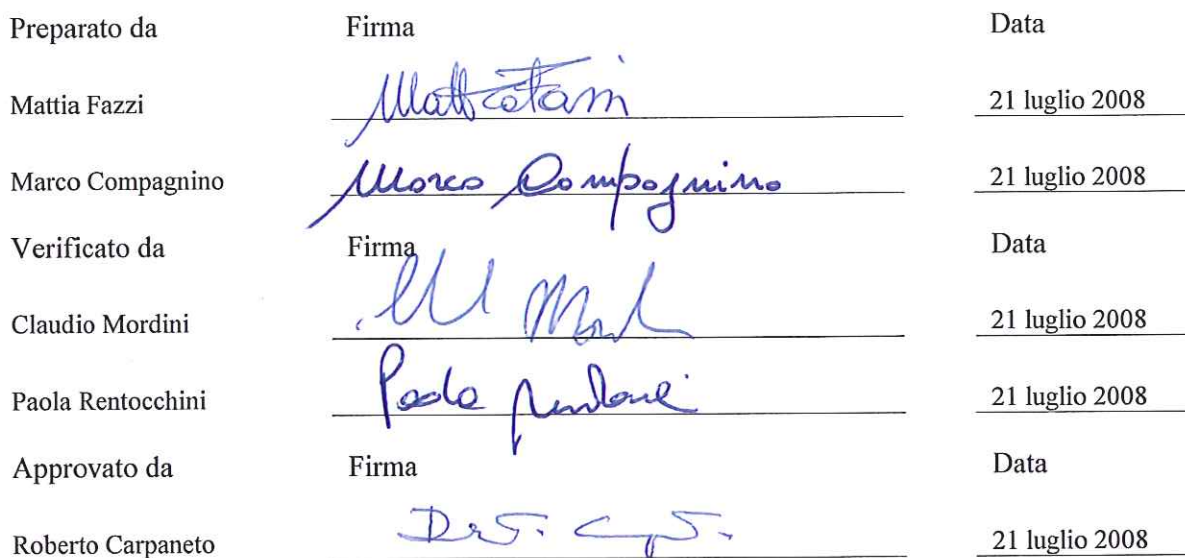 Preparato da Firma Data
Mattia Fazzi 21 luglio 2008
Marco Compagnino Marco Compagnino 21 luglio 2008
Verificato da Firma Data
Claudio Mordini 21 luglio 2008
Paola Rentocchini Paola 21 luglio 2008
Approvato da Firma Data
Roberto Carpaneto 21 luglio 2008